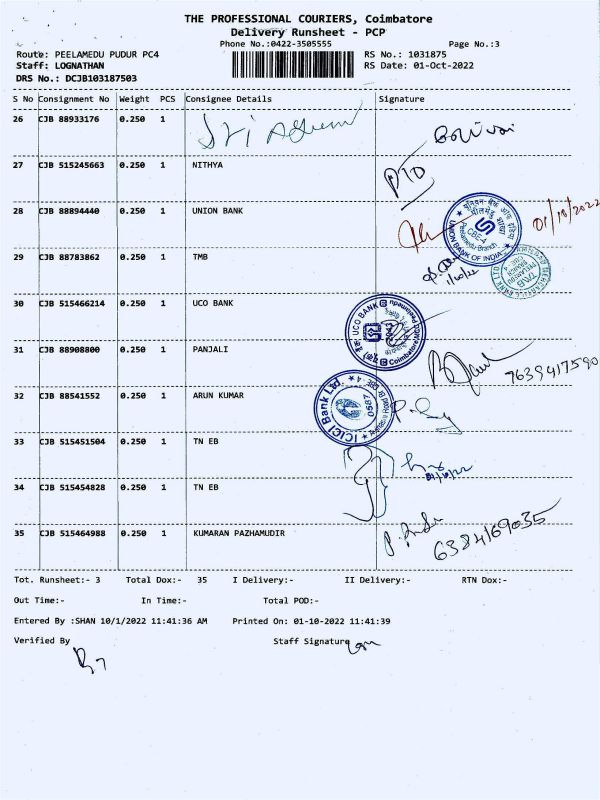 THE PROFESSIONAL COURIERS, Coimbatore
Delivery Runsheet - PCP
Phone No.:0422-3505555 Page No.:3
Route: PEELAMEDU PUDUR PC4 RS No.: 1031875
Staff: LOGNATHAN RS Date: 01-Oct-2022
DRS No.: DCJB103187503
S No Consignment No Weight PCS Consignee Details Signature
26 CJB 88933176 0.250 1
27 CJB 515245663 0.250 1 NITHYA
PTO
28 CJB 88894440 0.250 1 UNION BANK
01/10/2022
UNION BANK OF INDIA
Peelamedu Branch
CBE-4
29 CJB 88783862 0.250 1 TMB
1/10/22
30 CJB 515466214 0.250 1 UCO BANK
UCO BANK
31 CJB 88908800 0.250 1 PANJALI
7639417590
32 CJB 88541552 0.250 1 ARUN KUMAR
ICICI Bank Ltd.
0587
33 CJB 515451504 0.250 1 TN EB
34 CJB 515454828 0.250 1 TN EB
35 CJB 515464988 0.250 1 KUMARAN PAZHAMUDIR
6384169035
Tot. Runsheet:- 3 Total Dox:- 35 I Delivery:- II Delivery:- RTN Dox:-
Out Time:- In Time:- Total POD:-
Entered By :SHAN 10/1/2022 11:41:36 AM Printed On: 01-10-2022 11:41:39
Verified By Staff Signature